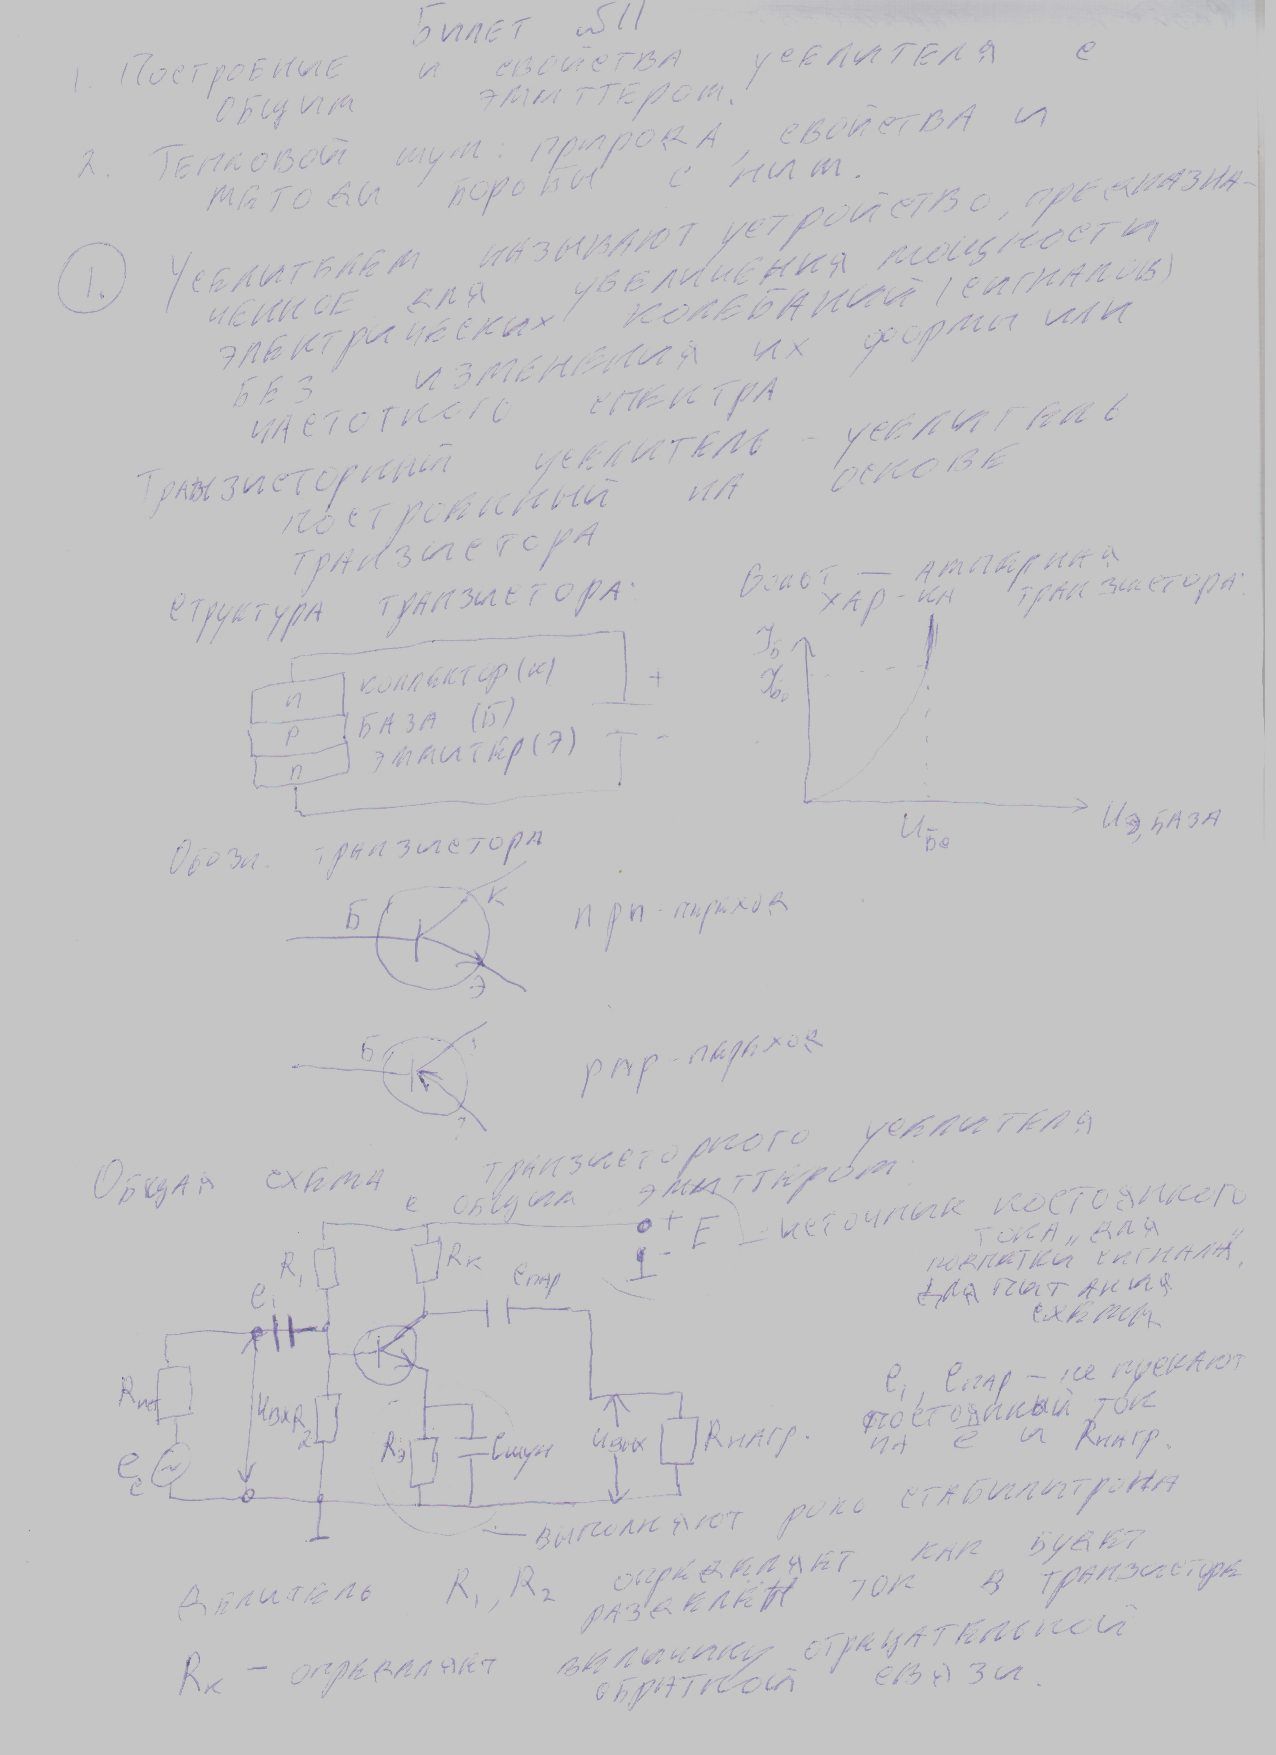 Билет №11
1. Построение и свойства усилителя с
общим эмиттером.
2. Тепловой шум: природа, свойства и
методы борьбы с ним.
1. Усилителем называют устройство, предназна-
ченное для увеличения мощности
электрических колебаний (сигналов)
без изменения их формы или
частотного спектра
Транзисторный усилитель - усилитель
построенный на основе
транзистора
Структура транзистора:
Вольт - амперная
хар-ка транзистора:
n коллектор (к)
p база (Б)
n эмиттер (Э)
+
-
Iб
Iб0
Uб0
Uэ, база
Обозн. транзистора
Б К Э
npn-переход
Б
pnp-переход
Общая схема транзисторного усилителя
с общим эмиттером:
+ E - источник постоянного
тока, для
подпитки сигнала,
для питания
схемы
R1 Rк Cпар
C1
Rист Uвх R2 Rэ Cшун Uвых Rнагр.
ec
C1, Cпар - не пускают
постоянный ток
на e и Rнагр.
- выполняют роль стабилитрона
Делитель R1, R2 определяет как будет
разделён ток в транзисторе
Rк - определяет величину отрицательной
обратной связи.